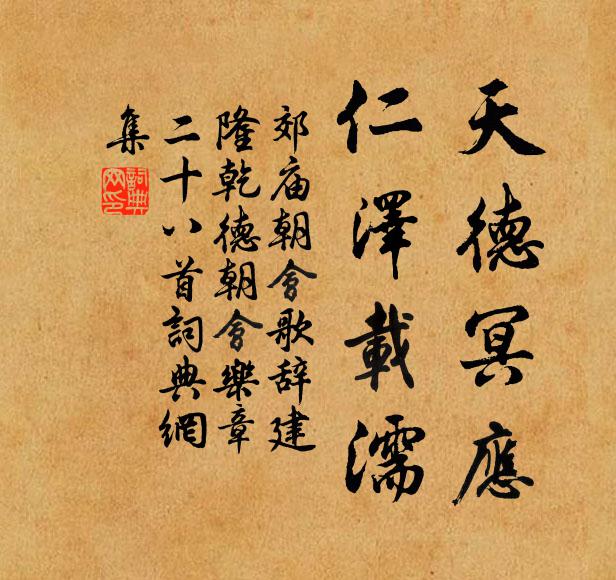 天德冥應
仁澤載濡
郊庙朝會歌辞建
隆乾德朝會樂章
二十八首詞典網
集
詞典
网印